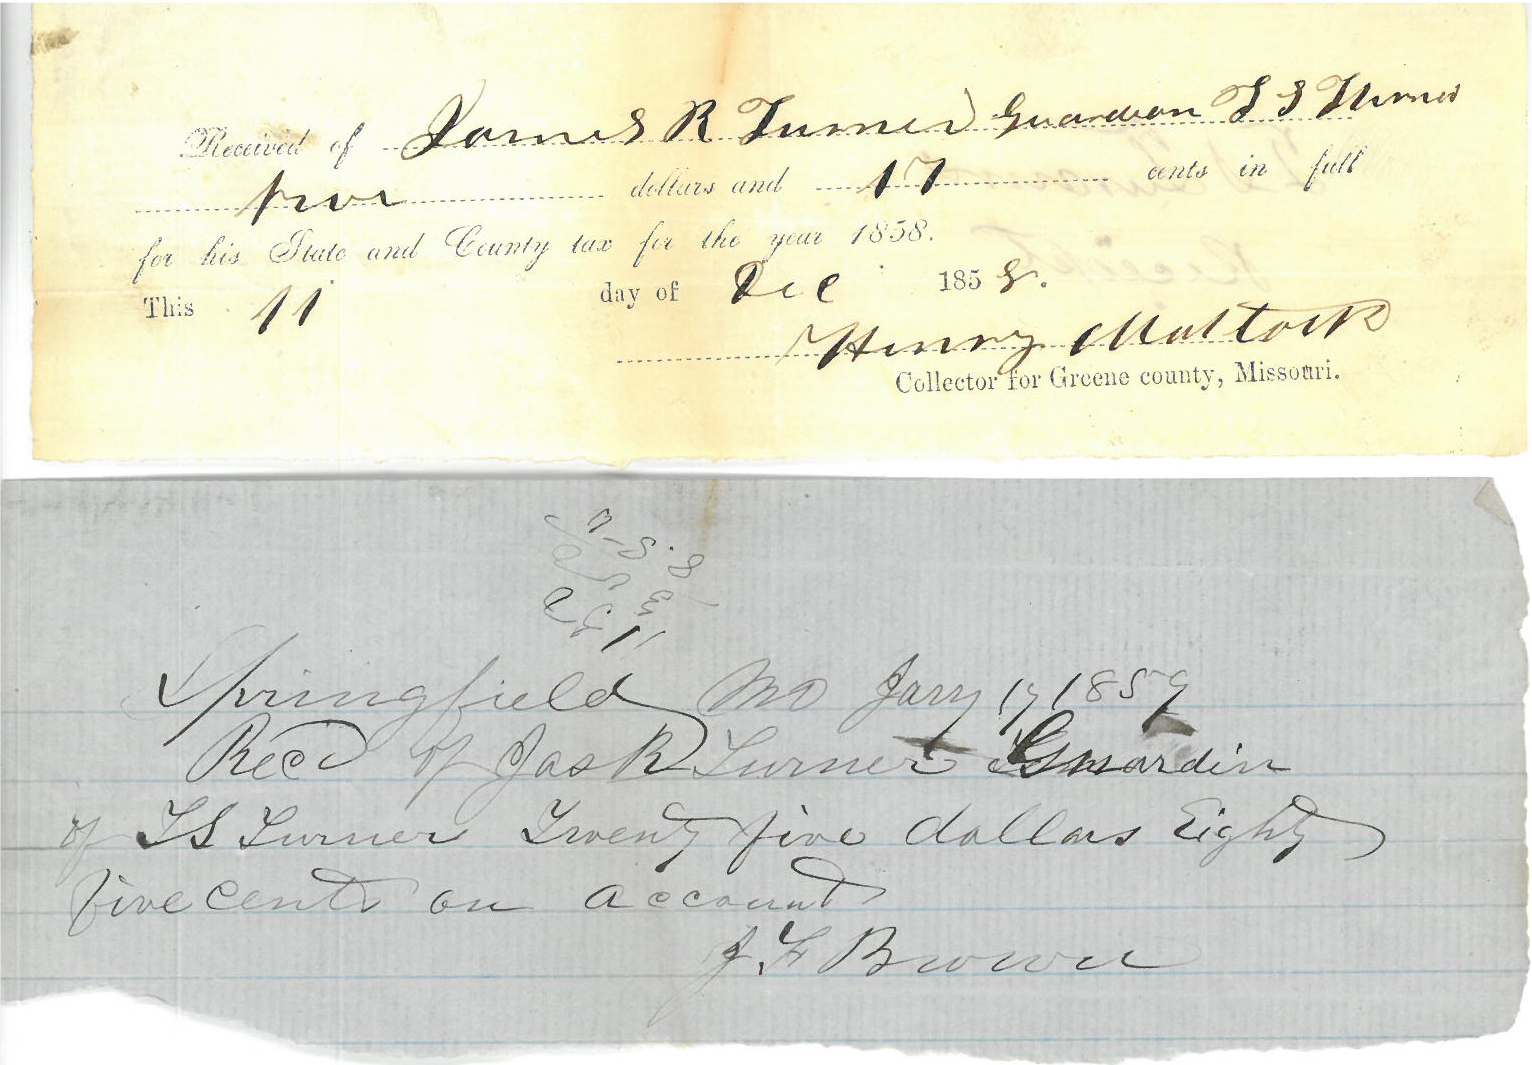 Received of James R Turner Guardian T S Turner
five dollars and 17 cents in full
for his State and County tax for the year 1858.
This 11 day of Dec 1858.
Henry Matlock
Collector for Greene county, Missouri.
Springfield Mo Jany 17 1859
Recd of Jas R Turner Guardin
of TS Turner Twenty five dollars Eighty
five cents on account
J. F Brown